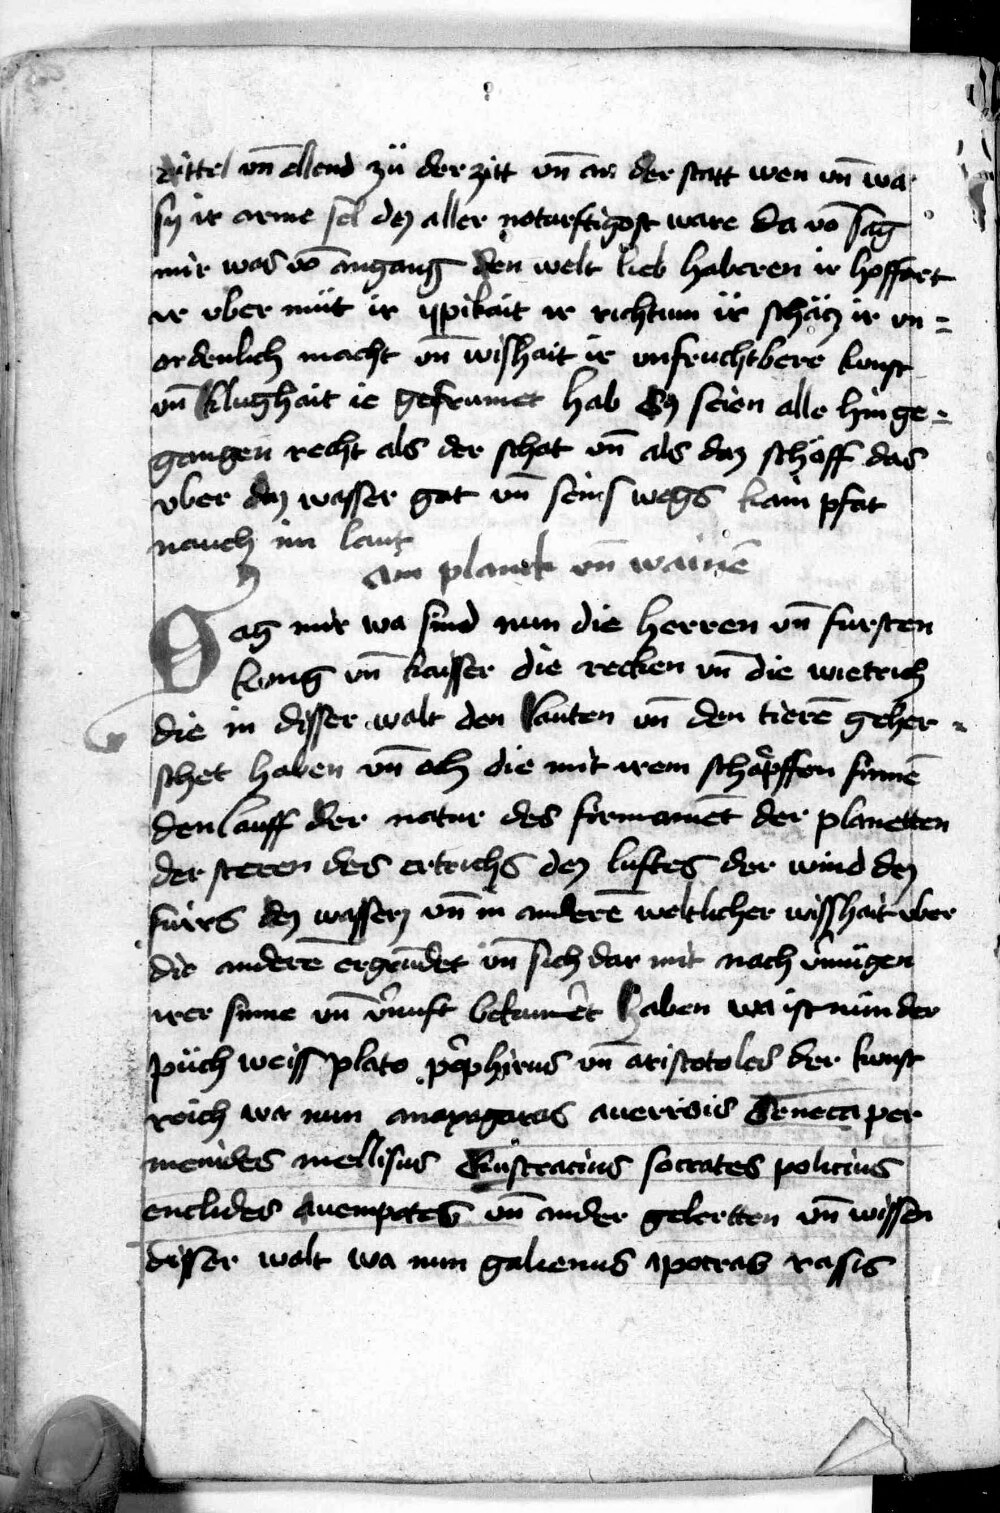 rittel vn̄ ellend zü der zitt vn̄ an der statt wen vn̄ wa
sy ir arme sel dez aller notturftigost ware da vō sag
mir was vō angang den welt lieb haberen ir hoffart
ir vber müt ir ypikait ir richtum ir schätz ir vn=
ordenlich macht vn̄ wishait ir vnfruchtbere kunst
vn̄ klughait ie geframet hab Sy seien alle hin ge=
gangen recht als der schat vn̄ als daz schöff das
vber daz wasser gat vn̄ seins wegs kain pfat
nauch im laut
ain planck vn̄ wainē
Sag mir wa sind nun die herren vn̄ fursten
kunig vn̄ kaisser die recken vn̄ die wietrich
die in disser walt den lauten vn̄ den tierē geher=
schet haben vn̄ ach die mit irem schärpffen sinnē
den lauff der natur des firmamēt der planetten
der steren des ertrichs dez luftes der wind dez
fuirs dez wasserz vn̄ in anderē weltlicher wisshait vber
die anderē ergrūdet vn̄ sich dar mit nach v̂mügen
irer sinne vn̄ v̂nunft bekumêt haben wa ist nün der
püch weiss plato pôphirus vn̄ aristotoles der kunst
reich wa nun anaxagoras auerrois Seneca per
menides mellisus Eustracius socrates policius
euclides auempotes vn̄ ander gelertten vn̄ wissen
disser walt wa nun galienus ypocras rassis